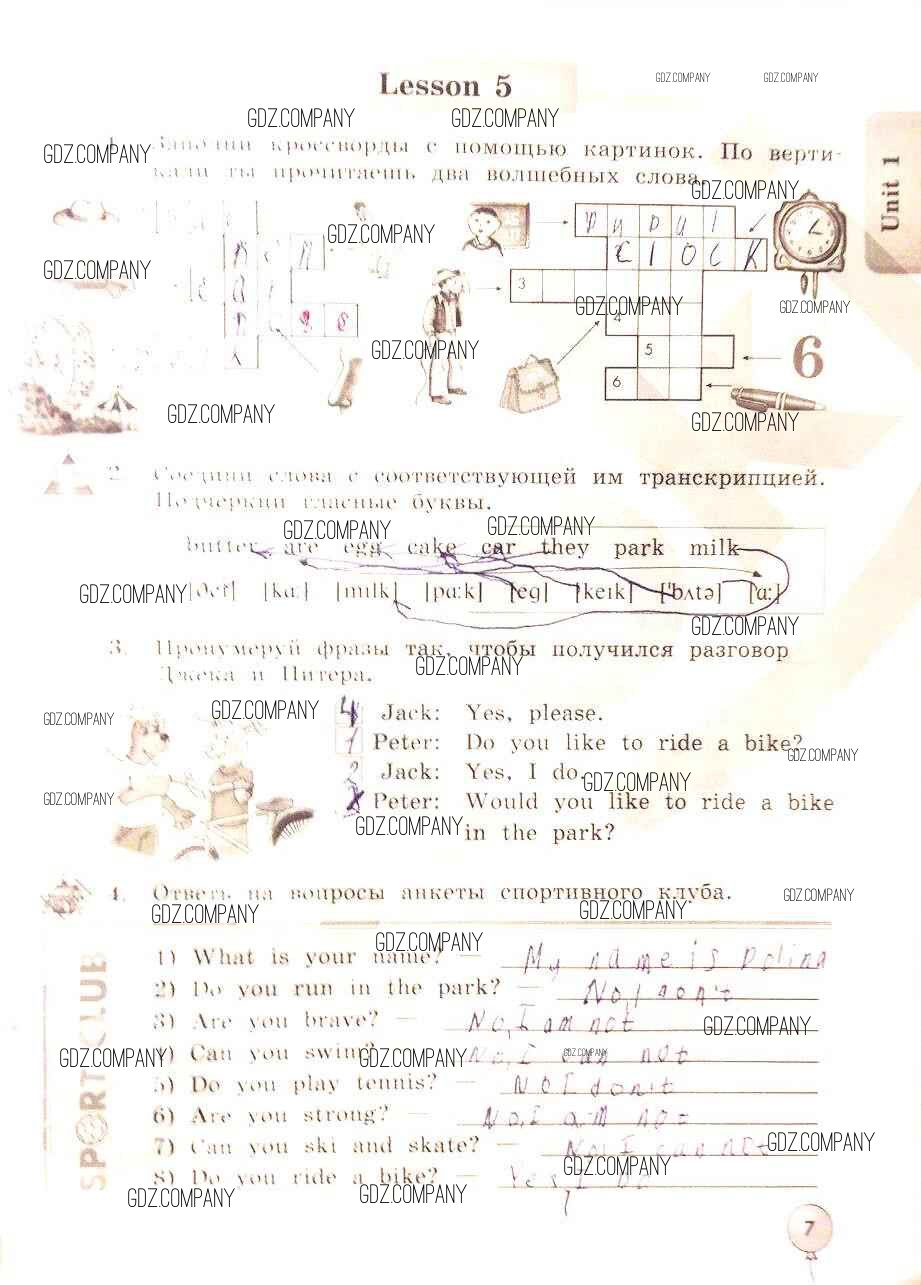 Lesson 5
GDZ.COMPANY GDZ.COMPANY
GDZ.COMPANY GDZ.COMPANY
GDZ.COMPANY
Unit 1
1. Заполни кроссворды с помощью картинок. По верти-
кали ты прочитаешь два волшебных слова.
GDZ.COMPANY
GDZ.COMPANY
GDZ.COMPANY
p u p u l
c l o c k
3
GDZ.COMPANY
GDZ.COMPANY
4
GDZ.COMPANY
5
6
6
GDZ.COMPANY
GDZ.COMPANY
2. Соедини слова с соответствующей им транскрипцией.
Подчеркни гласные буквы.
GDZ.COMPANY GDZ.COMPANY
butter are egg cake car they park milk
GDZ.COMPANY
[ðeɪ] [kɑː] [mɪlk] [pɑːk] [eg] [keɪk] ['bʌtə] [ɑː]
GDZ.COMPANY
3. Пронумеруй фразы так, чтобы получился разговор
Джека и Питера.
GDZ.COMPANY
GDZ.COMPANY GDZ.COMPANY
4 Jack: Yes, please.
1 Peter: Do you like to ride a bike?
GDZ.COMPANY
2 Jack: Yes, I do.
GDZ.COMPANY
GDZ.COMPANY
Peter: Would you like to ride a bike
in the park?
GDZ.COMPANY
4. Ответь на вопросы анкеты спортивного клуба.
GDZ.COMPANY
GDZ.COMPANY GDZ.COMPANY
GDZ.COMPANY
SPORT CLUB
1) What is your name? — My name is Polina
2) Do you run in the park? — No, I don't
3) Are you brave? — No, I am not
GDZ.COMPANY
4) Can you swim? — No, I can not
GDZ.COMPANY GDZ.COMPANY GDZ.COMPANY
5) Do you play tennis? — No I don't
6) Are you strong? — No, I am not
7) Can you ski and skate? — No, I can not
GDZ.COMPANY
GDZ.COMPANY
8) Do you ride a bike? — Yes, I do
GDZ.COMPANY GDZ.COMPANY
7